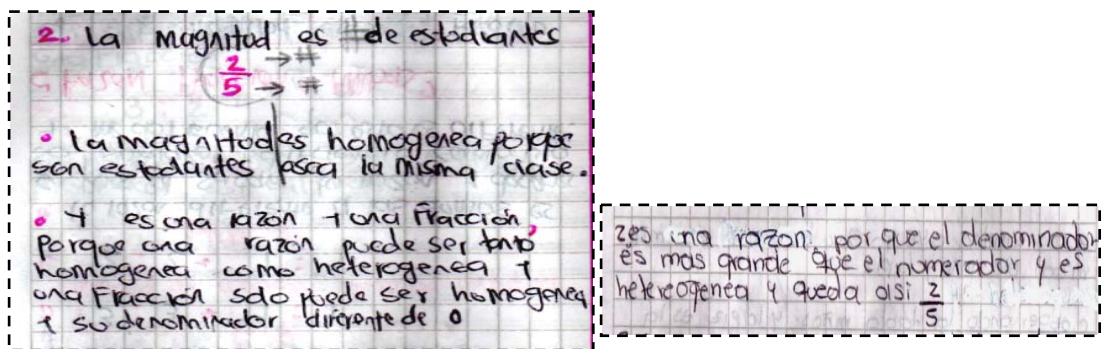 2. la magnitud es # de estudiantes
2 → #
5 → #
• la magnitud es homogenea porque
son estudiantes osea la misma clase.
• Y es una razón y una Fracción,
Porque una razón puede ser tanto
homogenea como heterogenea y
una Fracción solo puede ser homogenea
y su denominador diferente de 0
2 es una razon, por que el denominador
es mas grande que el numerador y es
hetereogenea y queda asi 2/5